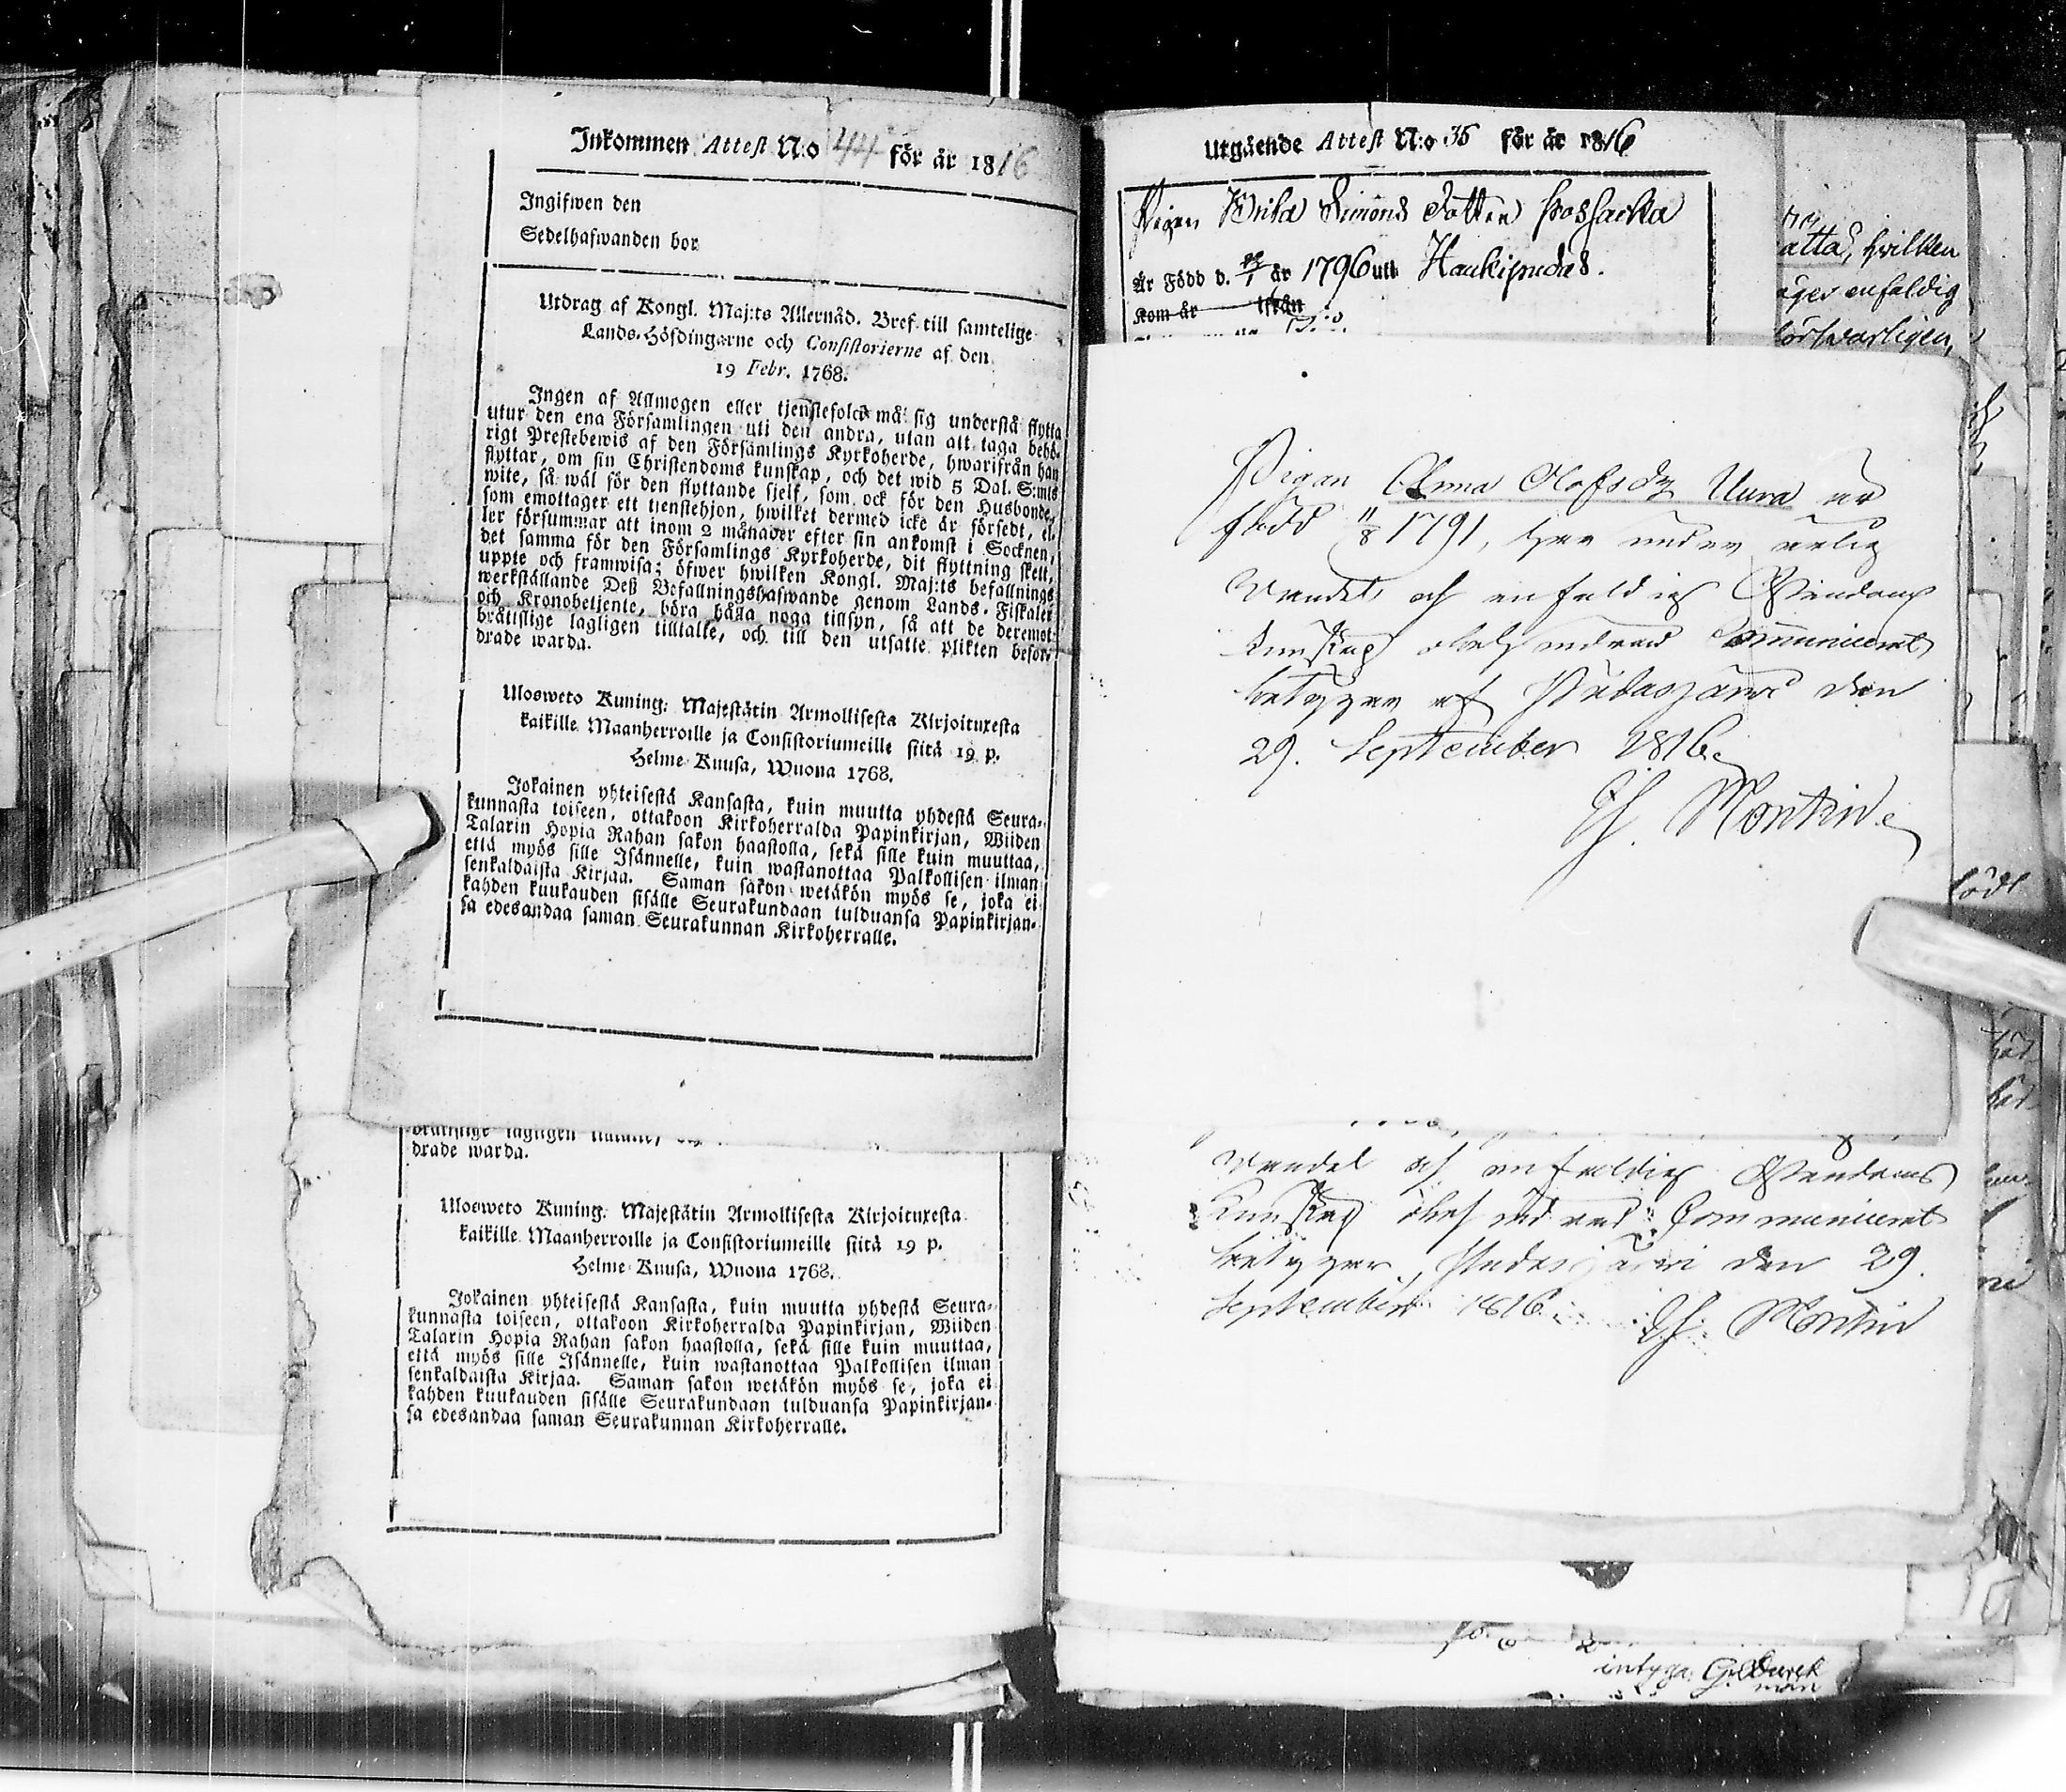 Inkommen Attest N:o 44 för år 1816
Ingifwen den
Sedelhafwanden bor
Utdrag af Kongl. Maj:ts Allernåd. Bref till samtelige
Lands-Höfdingarne och Consistorierne af den
19 Febr. 1768.
Ingen af Allmogen eller tjenstefolck må sig understå flytta
utur den ena Församlingen uti den andra, utan att taga behö-
rigt Prestebewis af den Församlings Kyrkoherde, hwarifrån han
flyttar, om sin Christendoms kunskap, och det wid 5 Dal. S:mts
wite, så wäl för den flyttande sjelf, som ock för den Husbonde,
som emottager ett tjenstehjon, hwilket dermed icke är försedt, el-
ler försummar att inom 2 månader efter sin ankomst i Socknen,
det samma för den Församlings Kyrkoherde, dit flyttning skett,
uppte och framwisa; öfwer hwilken Kongl. Maj:ts befallnings
werkställande Deß Befallningshafwande genom Lands-Fiskaler
och Kronobetjente, böra hålla noga tillsyn, så att de deremot
bråttslige lagligen tilltalte, och till den utsatte plikten befor-
drade warda.
Ulosweto Kuning: Majestätin Armollisesta Kirjoituxesta
kaikille Maanherroille ja Consistoriumeille siitä 19 p.
Helme-Kuusa, Wuona 1768.
Jokainen yhteisestä Kansasta, kuin muutta yhdestä Seura-
kunnasta toiseen, ottakoon Kirkoherralda Papinkirjan, Wiiden
Talarin Hopia Rahan sakon haastolla, sekä sille kuin muuttaa,
että myös sille Isännelle, kuin wastanottaa Palkollisen ilman
senkaldaista Kirjaa. Saman sakon wetäkön myös se, joka ei
kahden kuukauden sisälle Seurakundaan tulduansa Papinkirjan-
sa edesandaa saman Seurakunnan Kirkoherralle.
drade warda.
Ulosweto Kuning: Majestätin Armollisesta Kirjoituxesta
kaikille Maanherroille ja Consistoriumeille siitä 19 p.
Helme-Kuusa, Wuona 1768.
Jokainen yhteisestä Kansasta, kuin muutta yhdestä Seura-
kunnasta toiseen, ottakoon Kirkoherralda Papinkirjan, Wiiden
Talarin Hopia Rahan sakon haastolla, sekä sille kuin muuttaa,
että myös sille Isännelle, kuin wastanottaa Palkollisen ilman
senkaldaista Kirjaa. Saman sakon wetäkön myös se, joka ei
kahden kuukauden sisälle Seurakundaan tulduansa Papinkirjan-
sa edesandaa saman Seurakunnan Kirkoherralle.
Utgående Attest N:o 35 för år 1816
Pigan Brita Simons dotter
Är Född d. år 1796 uti Haukipudas.
Kom år ifrån
hvilken
enfaldig
försvarligen,
Pigan Anna Olofsdr Uura är
född 11/8 1791, har under ärlig
Vandel och enfaldig Christendoms
kunskap Communicerat
betygar af Pudasjärvi den
29. September 1816.
Vandel och enfaldig Christendoms
Kunskap Communicerat
betygar, Pudasjärvi den 29.
September 1816.
född
intyga